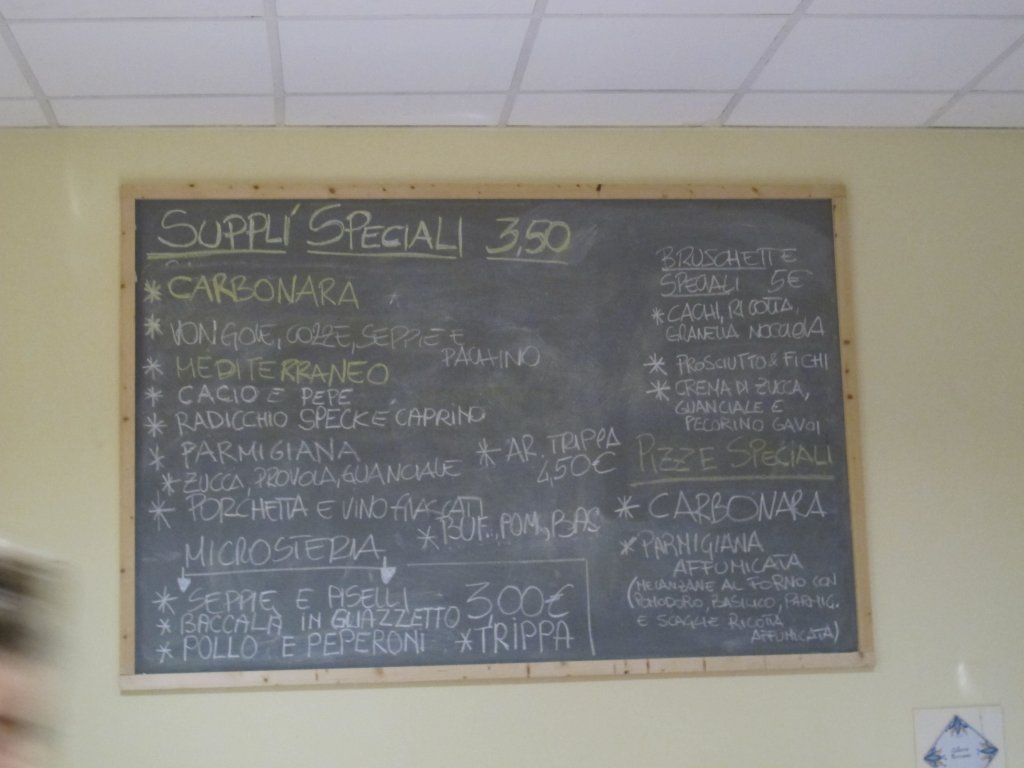 SUPPLI' SPECIALI 3,50
* CARBONARA
* VONGOLE, COZZE, SEPPIE E
PACHINO
* MEDITERRANEO
* CACIO E PEPE
* RADICCHIO SPECK E CAPRINO
* PARMIGIANA
* ZUCCA, PROVOLA, GUANCIALE
* PORCHETTA E VINO FRASCATI
* AR. TRIPPA
4,50€
* BUF., POM., BAS
MICROSTERIA
* SEPPIE E PISELLI 3,00€
* BACCALÀ IN GUAZZETTO
* POLLO E PEPERONI * TRIPPA
BRUSCHETTE
SPECIALI 5€
* CACHI, RICOTTA,
GRANELLA NOCCIOLA
* PROSCIUTTO & FICHI
* CREMA DI ZUCCA,
GUANCIALE E
PECORINO GAVOI
PIZZE SPECIALI
* CARBONARA
* PARMIGIANA
AFFUMICATA
(MELANZANE AL FORNO CON
POMODORO, BASILICO, PARMIG.
E SCAGLIE RICOTTA
AFFUMICATA)